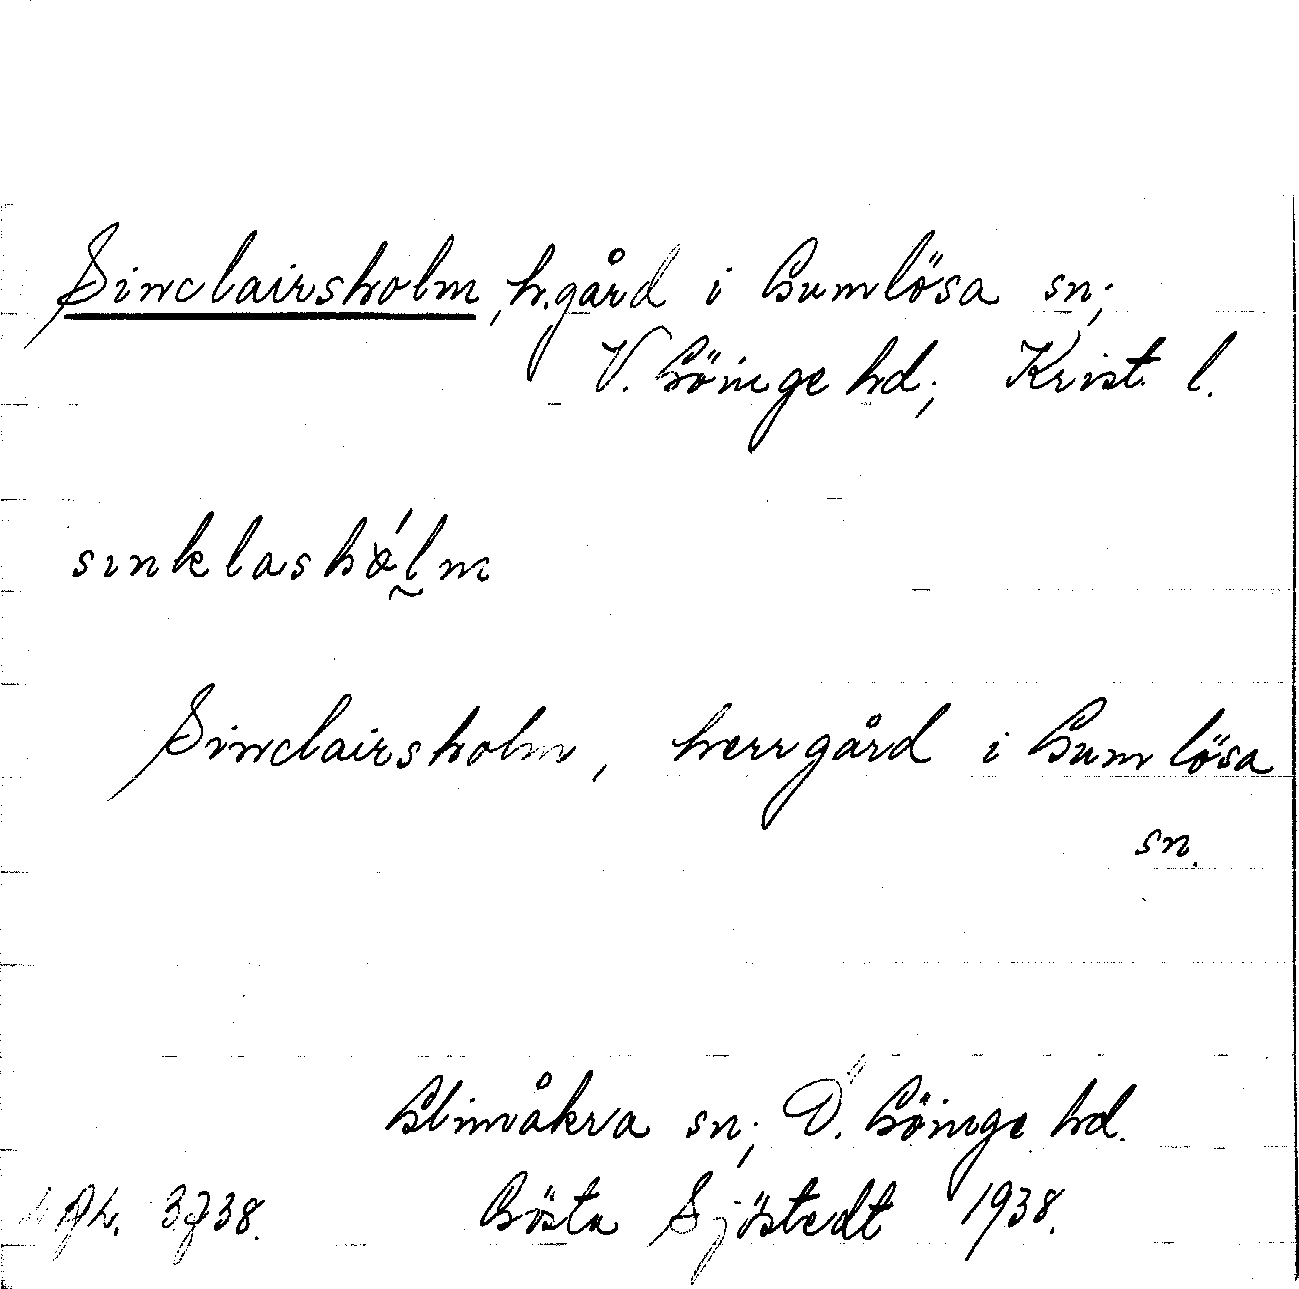 Sinclairsholm, h.gård i Gumlösa sn;
V. Göinge hd; Krist. l.
sınklashól̰m
Sinclairsholm, herrgård i Gumlösa
sn.
Glimåkra sn; Ö. Göinge hd.
Gösta Sjöstedt 1938.